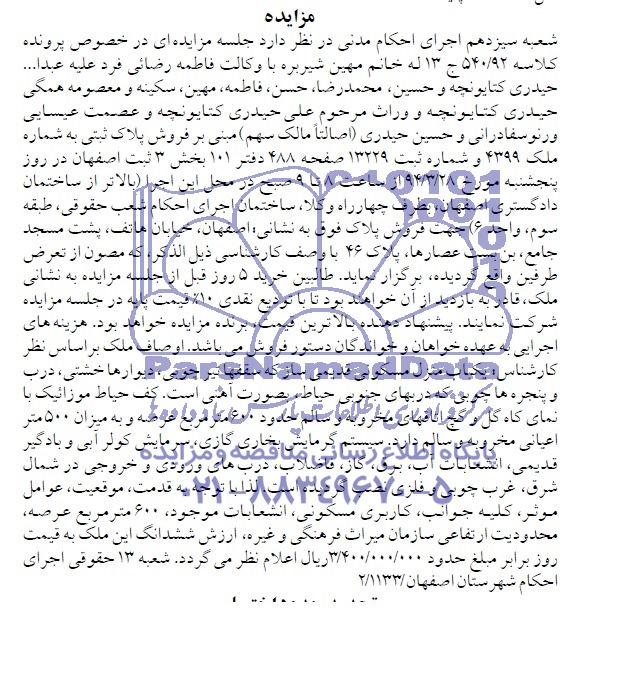 مزایده
شعبه سیزدهم اجرای احکام مدنی در نظر دارد جلسه مزایده‌ای در خصوص پرونده
کلاسه ۵۴۰/۹۲ ج ۱۳ له خانم مهین شیربره با وکالت فاطمه رضائی فرد علیه عبدا...
حیدری کتایونچه و حسین، محمدرضا، حسن، فاطمه، مهین، سکینه و معصومه همگی
حیدری کتایونچه و وراث مرحوم علی حیدری کتایونچه و عصمت عیسایی
ورنوسفادرانی و حسین حیدری (اصالتاً مالک سهم) مبنی بر فروش پلاک ثبتی به شماره
ملک ۴۳۹۹ و شماره ثبت ۱۳۲۲۹ صفحه ۴۸۸ دفتر ۱۰۱ بخش ۳ ثبت اصفهان در روز
پنجشنبه مورخ ۹۴/۳/۲۸ از ساعت ۸ تا ۹ صبح در محل این اجرا (بالاتر از ساختمان
دادگستری اصفهان، بطرف چهارراه وکلا، ساختمان اجرای احکام شعب حقوقی، طبقه
سوم، واحد ۶) جهت فروش پلاک فوق به نشانی، اصفهان، خیابان هاتف، پشت مسجد
جامع، بن بست عصارها، پلاک ۴۶ با وصف کارشناسی ذیل الذکر، که مصون از تعرض
طرفین واقع گردیده، برگزار نماید. طالبین خرید ۵ روز قبل از جلسه مزایده به نشانی
ملک، قادر به بازدید از آن خواهند بود تا با تودیع نقدی ۱۰٪ قیمت پایه در جلسه مزایده
شرکت نمایند. پیشنهاد دهنده بالاترین قیمت، برنده مزایده خواهد بود. هزینه های
اجرایی به عهده خواهان و خواندگان دستور فروش می باشد. اوصاف ملک براساس نظر
کارشناس: یکباب منزل مسکونی قدیمی ساز که سقفها تیر چوبی، دیوارها خشتی، درب
و پنجره ها چوبی که دربهای جنوبی حیاط، بصورت آهنی است. کف حیاط موزائیک با
نمای کاه گل و گچ اتاقهای مخروبه و سالم حدود ۶۰۰ متر مربع عرصه و به میزان ۵۰۰ متر
اعیانی مخروبه و سالم دارد. سیستم گرمایش بخاری گازی، سرمایش کولر آبی و بادگیر
قدیمی، انشعابات آب، برق، گاز، فاضلاب، درب های ورودی و خروجی در شمال
شرق، غرب چوبی و فلزی نصب گردیده است. لذا با توجه به قدمت، موقعیت، عوامل
موثر، کلیه جوانب، کاربری مسکونی، انشعابات موجود، ۶۰۰ متر مربع عرصه،
محدودیت ارتفاعی سازمان میراث فرهنگی و غیره، ارزش ششدانگ این ملک به قیمت
روز برابر مبلغ حدود ۳/۴۰۰/۰۰۰/۰۰۰ریال اعلام نظر می گردد. شعبه ۱۳ حقوقی اجرای
احکام شهرستان اصفهان/۲/۱۱۳۳
ParsNamadData
مرکز فرآوری اطلاعات پارس نماد داده ها
پایگاه اطلاع رسانی مناقصه و مزایده
۰۲۱-۸۸۳۴۹۶۷۰-۵